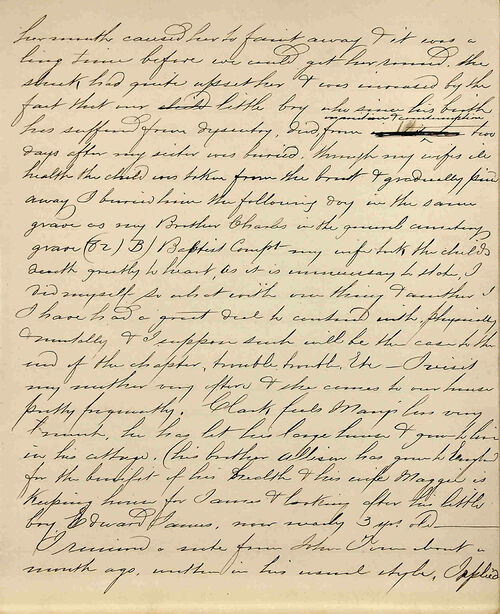 her mouth caused her to faint away & it was a
long time before we could get her round. the
shock had quite upset her & was increased by the
fact that our little boy who since his birth
has suffered from dysentry, died from inanition & consumption two
days after my sister was buried, through my wifes ill
health the child was taken from the breast & gradually pined
away I buried him the following day in the same
grave as my Brother Charles in the general cemetery
grave (82) B) Baptist Compt my wife took the child's
death greatly to heart as it is unnecessary to state, I
did myself so what with one thing & another I
I have had a great deal to contend with, physically
& mentally & I suppose such will be the case to the
end of the chapter, trouble trouble, Etc — I visit
my mother very often & she comes to our house
pretty frequently. Clark feels Mary's loss very
much, he has let his large house & gone to live
in his cottage, (his brother has gone to
for the benefit of his health & his wife Maggie is
keeping house for James & looking after his little
boy Edward James, now nearly 3 yrs old —
I received a note from John about a
month ago, written in his usual style, Applied